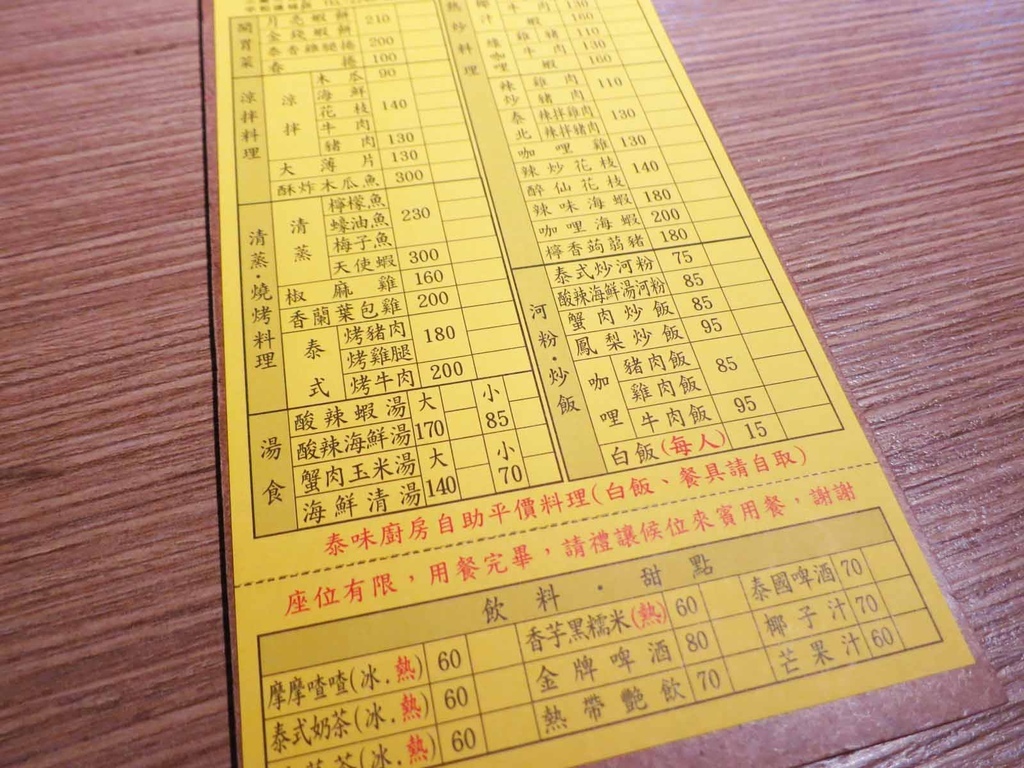 開胃菜
月亮蝦餅 210
金錢蝦餅
泰香雞腿捲 200
春捲 100
涼拌料理
涼拌
木瓜 90
海鮮
花枝 140
牛肉
豬肉 130
大薄片 130
酥炸木瓜魚 300
清蒸·燒烤料理
清蒸
檸檬魚
蠔油魚 230
梅子魚
天使蝦 300
椒麻雞 160
香蘭葉包雞 200
泰式
烤豬肉 180
烤雞腿
烤牛肉 200
湯食
酸辣蝦湯 大 小
酸辣海鮮湯 170 85
蟹肉玉米湯 大 小
海鮮清湯 140 70
熱炒料理
椰汁
牛肉 130
蝦 160
綠咖哩
雞豬 110
牛肉 130
蝦 160
辣炒
雞肉 110
豬肉
泰北
辣拌雞肉 130
辣拌豬肉
咖哩雞 130
辣炒花枝 140
醉仙花枝
辣味海蝦 180
咖哩海蝦 200
檸香蒟蒻豬 180
河粉·炒飯
泰式炒河粉 75
酸辣海鮮湯河粉 85
蟹肉炒飯 85
鳳梨炒飯 95
咖哩
豬肉飯 85
雞肉飯
牛肉飯 95
白飯(每人) 15
泰味廚房自助平價料理(白飯、餐具請自取)
座位有限，用餐完畢，請禮讓候位來賓用餐，謝謝
飲料·甜點
摩摩喳喳(冰.熱) 60 香芋黑糯米(熱) 60 泰國啤酒 70
泰式奶茶(冰.熱) 60 金牌啤酒 80 椰子汁 70
茶(冰.熱) 60 熱帶艷飲 70 芒果汁 60